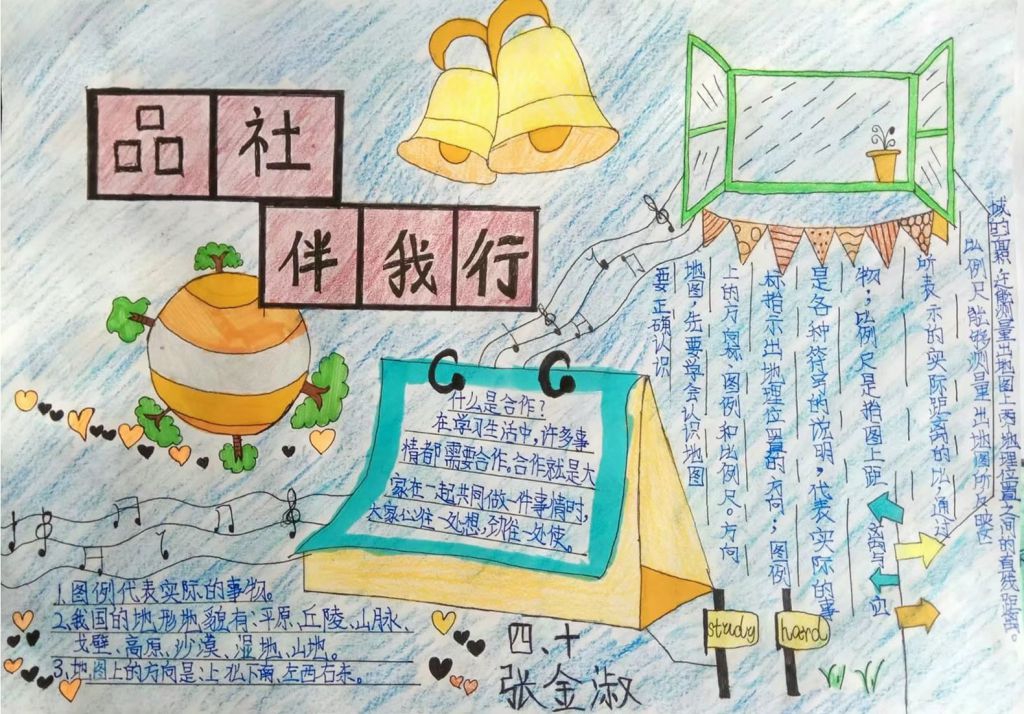 品社
伴我行
什么是合作?
在学习生活中,许多事
情都需要合作。合作就是大
家在一起共同做一件事情时,
大家心往一处想,劲往一处使。
要正确认识
地图,先要学会认识地图
上的方向、图例和比例尺。方向
标指示出地理位置的方向;图例
是各种符号的说明,代表实际的事
物;比例尺是指图上距离与
所表示的实际距离的比;通过
比例尺能够测量出地图所反映
域的面积,还能测量出地图上两地理位置之间的直线距离。
1.图例代表实际的事物。
2.我国的地形地貌有:平原、丘陵、山脉、
戈壁、高原、沙漠、湿地、山地。
3.地图上的方向是:上北下南、左西右东。
四、十
张金淑
study
hard